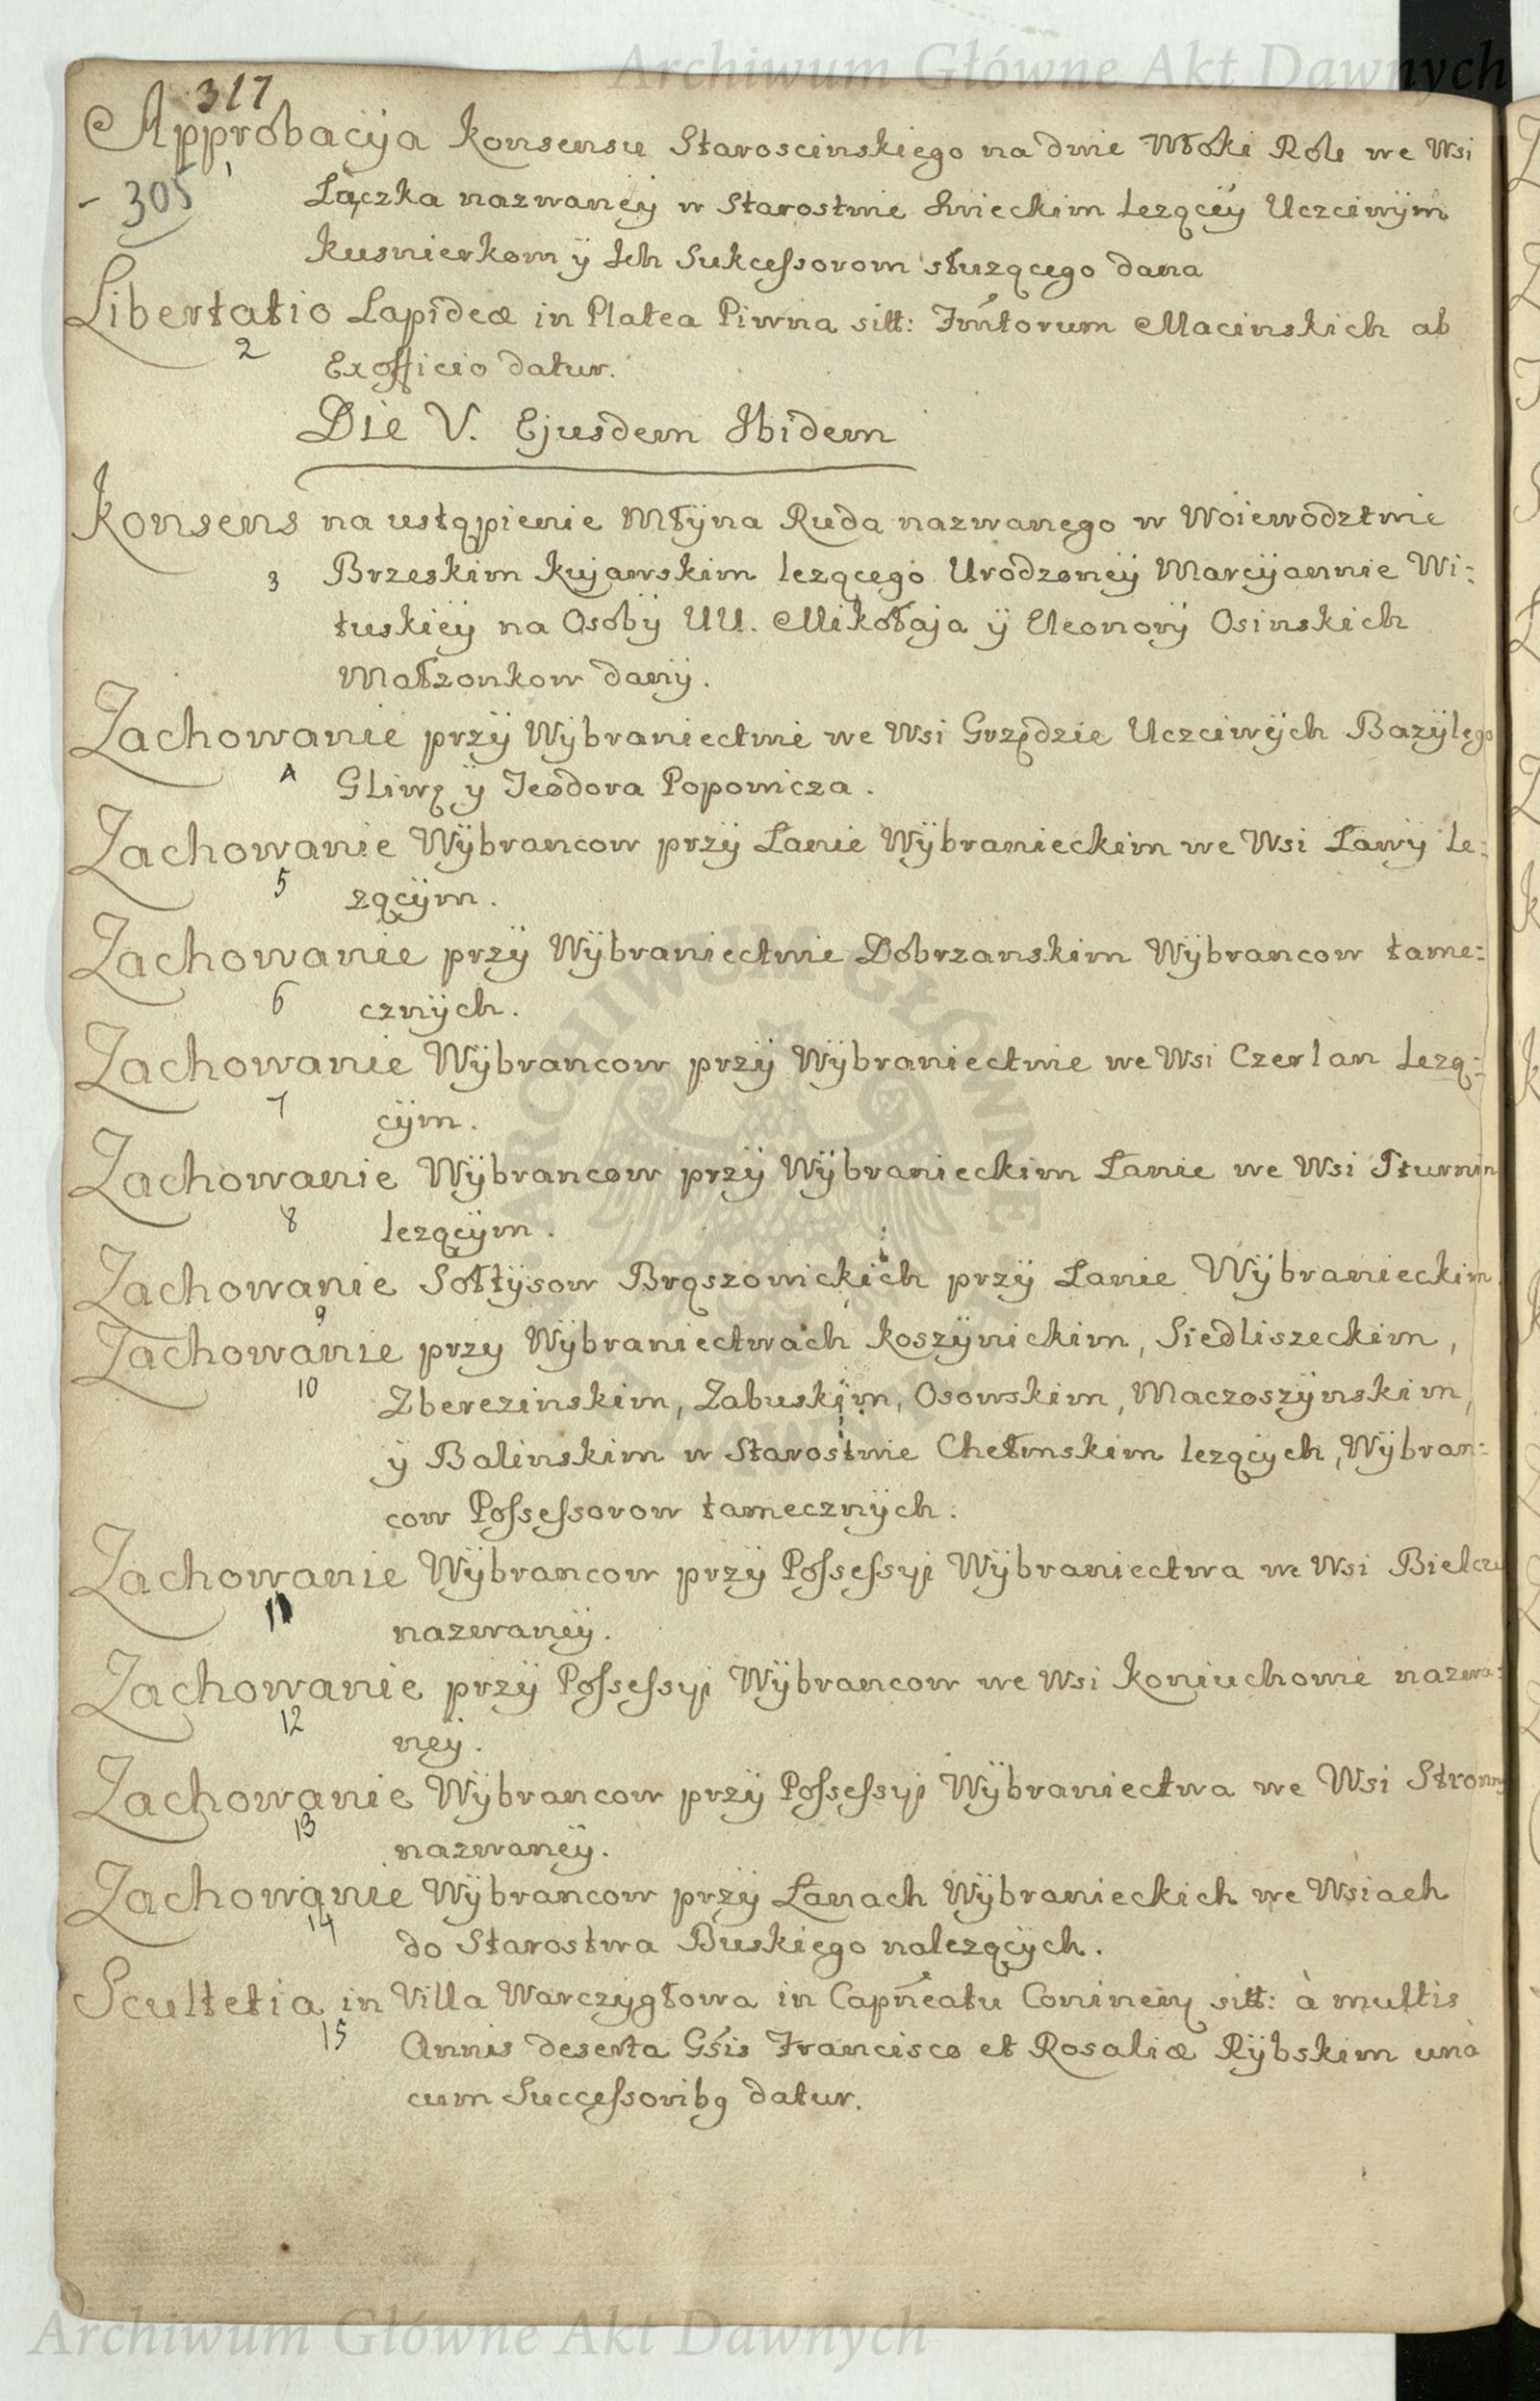 Archiwum Główne Akt Dawnych
317
Approbacÿa Konsensu Staroscinskiego na dwie Włoki Roli we Wsi
1
- 305
Łączka nazwanęÿ w Starostwie Swieckim lezącęÿ Uczciwÿm
Kusnierkom ÿ Jch Sukcessorom słuzącego dana
Libertatio Lapideæ in Platea Piwna sitt: Jmtorum Macinskich ab
2
Exofficio datur.
Die V. Ejusdem Jbidem
Konsens na ustąpienie Młÿna Ruda nazwanego w Woiewodztwie
3 Brzeskim Kujawskim lezącego Urodzonęÿ Marcÿannie Wi:
tuskięÿ na Osobÿ UU. Mikołaja ÿ Eleonorÿ Osinskich
Małzonkow danÿ.
Zachowanie przÿ Wÿbraniectwie we Wsi Grzędzie Uczciwÿch Bazÿlego
4 Gliwę ÿ Teodora Popowicza.
Zachowanie Wÿbrancow przÿ Łanie Wÿbranieckim we Wsi Ławÿ le:
5 zącÿm.
Zachowanie przÿ Wÿbraniectwie Dobrzanskim Wÿbrancow tame:
6 cznÿch.
Zachowanie Wÿbrancow przÿ Wÿbraniectwie we Wsi Czerlan lezą:
7 cÿm.
Zachowanie Wÿbrancow przÿ Wÿbranieckim Łanie we Wsi
8 lezącÿm.
Zachowanie Sołtÿsow Brąszowickich przÿ Łanie Wÿbranieckim
9
Zachowanie przy Wÿbraniectwach Koszÿnickim, Siedliszeckim,
10 Zberezinskim, Zabuskim, Osowskim, Maczoszÿnskim,
ÿ Balinskim w Starostwie Chełmskim lezącÿch, Wÿbran:
cow Possessorow tamecznÿch.
Zachowanie Wÿbrancow przÿ Possessÿi Wÿbraniectwa we Wsi
11 nazwanęÿ.
Zachowanie przÿ Possessÿi Wÿbrancow we Wsi Koniuchowie nazwa:
12 nęÿ.
Zachowanie Wÿbrancow przÿ Possessÿi Wÿbraniectwa we Wsi
13 nazwanęÿ.
Zachowanie Wÿbrancow przÿ Łanach Wÿbranieckich we Wsiach
14 do Starostwa Buskiego nalezącÿch.
Scultetia in Villa Warczygłowa in Capneatu Coninen sitt: à multis
15 Annis deserta Gsis Francisco et Rosaliæ Rÿbskim unà
cum Successoribq datur.
Archiwum Główne Akt Dawnych